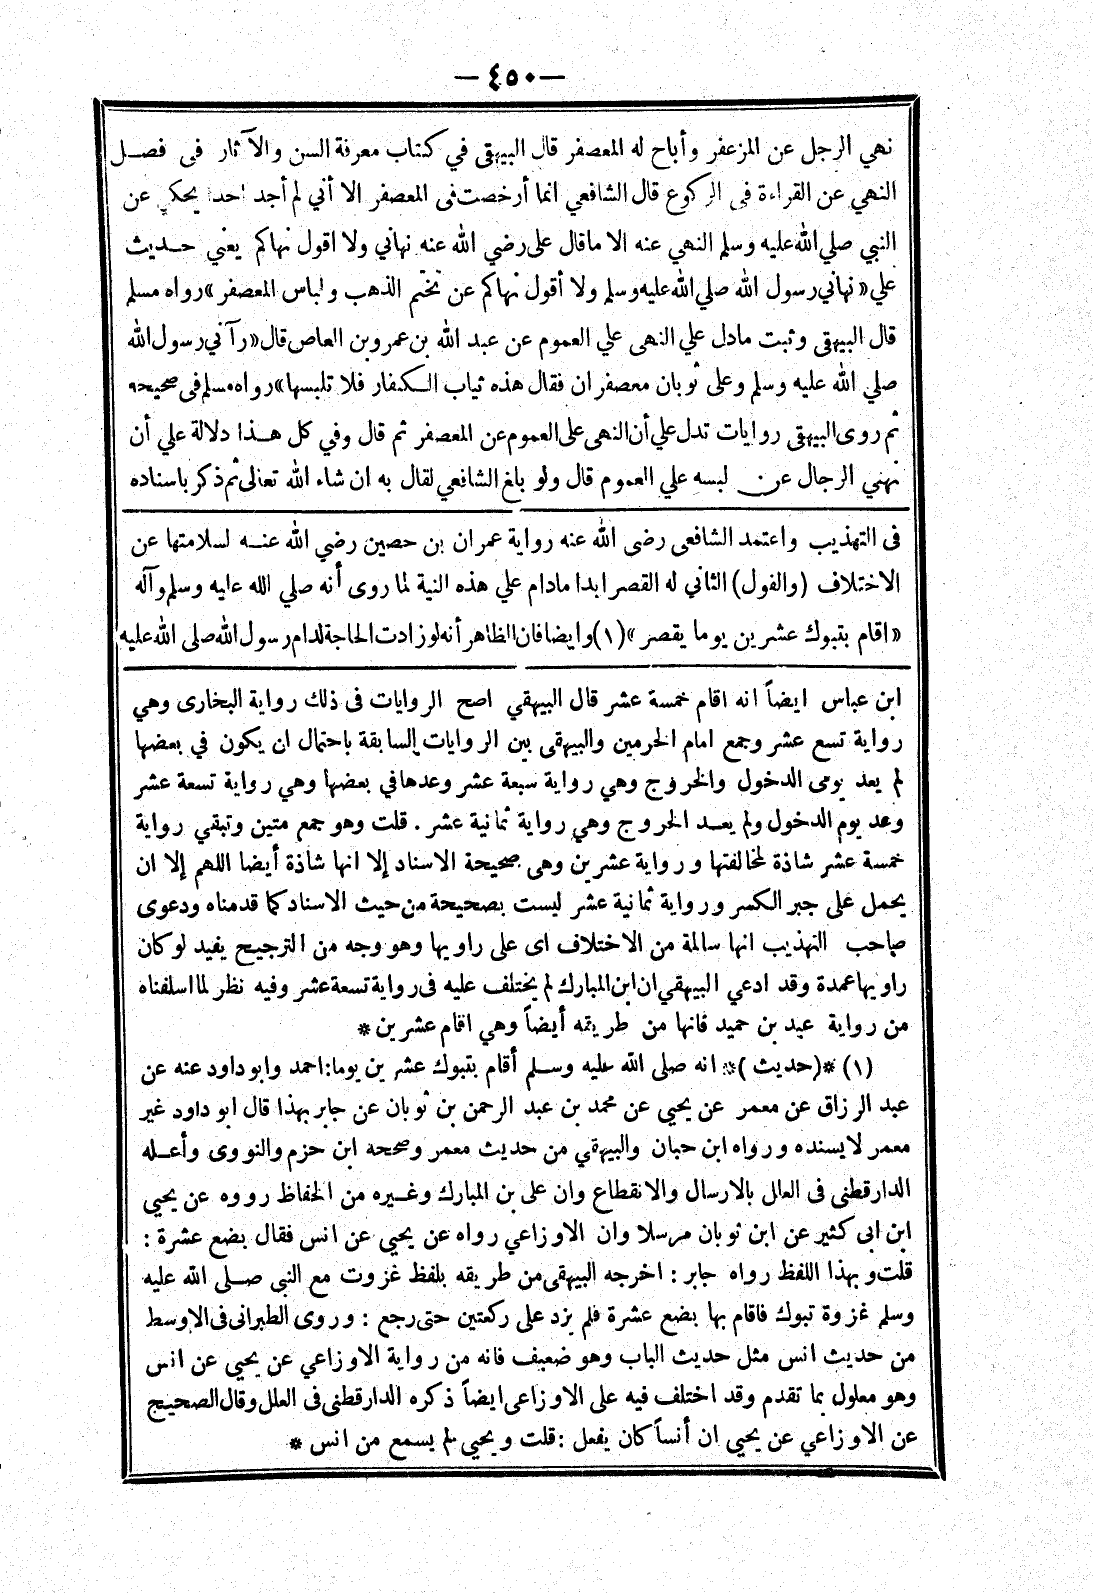 —٤٥٠—
نهي الرجل عن المزعفر وأباح له المعصفر قال البيهقى في كتاب معرفة السنن والآثار فى فصل
النهي عن القراءة فى الركوع قال الشافعي انما أرخصت فى المعصفر الا أني لم أجد احدا يحكي عن
النبي صلي الله عليه وسلم النهي عنه الا ما قال على رضي الله عنه نهاني ولا اقول نهاكم يعني حديث
علي «نهاني رسول الله صلي الله عليه وسلم ولا أقول نهاكم عن تختم الذهب ولباس المعصفر» رواه مسلم
قال البيهقى وثبت مادل علي النهى علي العموم عن عبد الله بن عمرو بن العاص قال «رآني رسول الله
صلي الله عليه وسلم وعلى ثوبان معصفران فقال هذه ثياب الكفار فلا تلبسها» رواه مسلم فى صحيحه
ثم روى البيهقى روايات تدل علي أن النهى على العموم عن المعصفر ثم قال وفي كل هذا دلالة علي أن
نهي الرجال عن لبسه علي العموم قال ولو بلغ الشافعي لقال به ان شاء الله تعالى ثم ذكر باسناده
فى التهذيب واعتمد الشافعى رضى الله عنه رواية عمران بن حصين رضي الله عنه لسلامتها عن
الاختلاف (والقول) الثاني له القصر ابدا مادام علي هذه النية لما روى أنه صلي الله عليه وسلم وآله
«اقام بتبوك عشرين يوما يقصر» (١) وايضا فان الظاهر أنه لو زادت الحاجة لدام رسول الله صلى الله عليه
ابن عباس ايضاً انه اقام خمسة عشر قال البيهقي اصح الروايات فى ذلك رواية البخارى وهي
رواية تسع عشر وجمع امام الحرمين والبيهقى بين الروايات السابقة باحتمال ان يكون في بعضها
لم يعد يومى الدخول والخروج وهي رواية سبعة عشر وعدها في بعضها وهي رواية تسعة عشر
وعد يوم الدخول ولم يعد الخروج وهي رواية ثمانية عشر . قلت وهو جمع متين وتبقي رواية
خمسة عشر شاذة لمخالفتها ورواية عشرين وهى صحيحة الاسناد إلا انها شاذة أيضا اللهم إلا ان
يحمل على جبر الكسر ورواية ثمانية عشر ليست بصحيحة من حيث الاسناد كما قدمناه ودعوى
صاحب التهذيب انها سالمة من الاختلاف اى على راويها وهو وجه من الترجيح يفيد لو كان
راويها عمدة وقد ادعي البيهقي ان ابن المبارك لم يختلف عليه فى رواية تسعة عشر وفيه نظر لما اسلفناه
من رواية عبد بن حميد فانها من طريقه أيضاً وهي اقام عشرين *
(١) *(حديث)* انه صلى الله عليه وسلم أقام بتبوك عشرين يوما: احمد وابو داود عنه عن
عبد الرزاق عن معمر عن يحيي عن محمد بن عبد الرحمن بن ثوبان عن جابر بهذا قال ابو داود غير
معمر لا يسنده ورواه ابن حبان والبيهقي من حديث معمر وصححه ابن حزم والنووى وأعله
الدارقطنى فى العلل بالارسال والانقطاع وان على بن المبارك وغيره من الحفاظ رووه عن يحيي
ابن ابى كثير عن ابن ثوبان مرسلا وان الاوزاعي رواه عن يحيي عن انس فقال بضع عشرة :
قلت وبهذا اللفظ رواه جابر : اخرجه البيهقى من طريقه بلفظ غزوت مع النبي صلى الله عليه
وسلم غزوة تبوك فاقام بها بضع عشرة فلم يزد على ركعتين حتى رجع : وروى الطبرانى فى الاوسط
من حديث انس مثل حديث الباب وهو ضعيف فانه من رواية الاوزاعي عن يحيي عن انس
وهو معلول بما تقدم وقد اختلف فيه على الاوزاعى ايضاً ذكره الدارقطنى فى العلل وقال الصحيح
عن الاوزاعي عن يحيي ان أنساً كان يفعل : قلت ويحيي لم يسمع من انس *